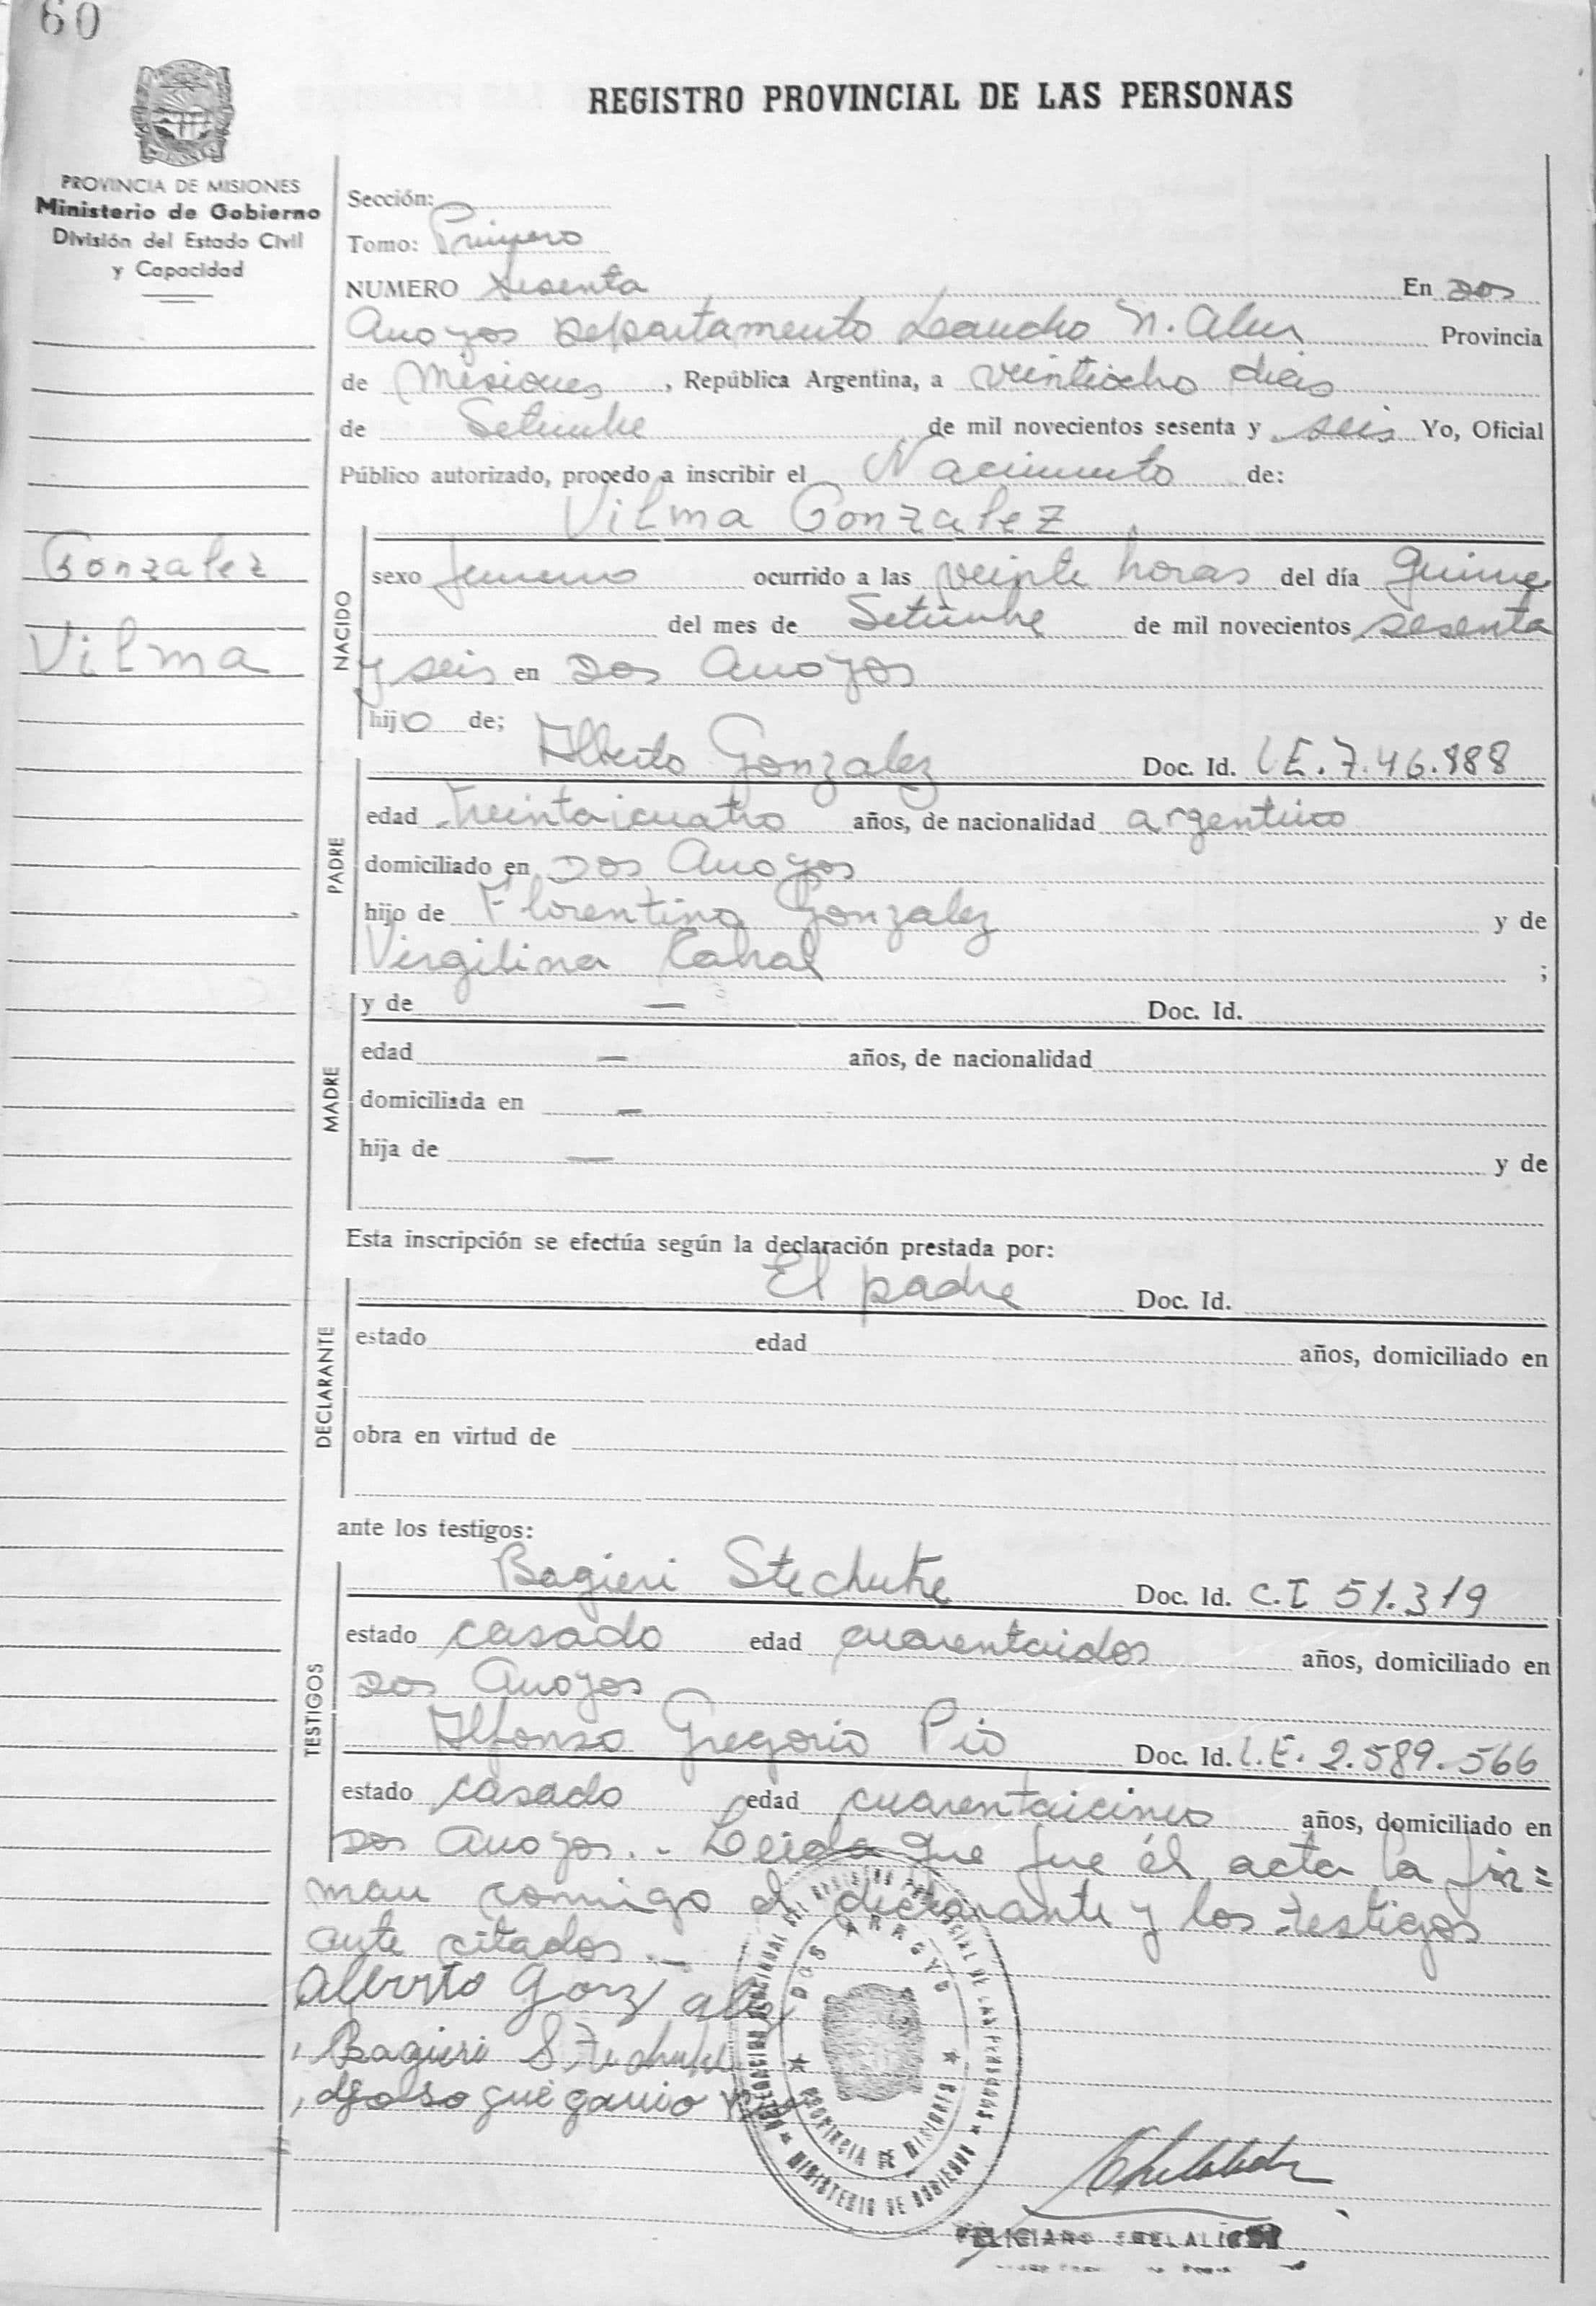 60
REGISTRO PROVINCIAL DE LAS PERSONAS
PROVINCIA DE MISIONES
Ministerio de Gobierno
División del Estado Civil
y Capacidad
Gonzalez
Vilma
Sección:
Tomo: Primero
NUMERO Sesenta En Dos
Arroyos Departamento Leandro N. Alem Provincia
de Misiones, República Argentina, a veintiocho dias
de Setiembre de mil novecientos sesenta y seis Yo, Oficial
Público autorizado, procedo a inscribir el Nacimiento de:
Vilma Gonzalez
NACIDO
sexo femenino ocurrido a las veinte horas del día quince
del mes de Setiembre de mil novecientos sesenta
y seis en Dos Arroyos
hijo de;
PADRE
Alberto Gonzalez Doc. Id. L.E. 7.46.888
edad treintaicuatro años, de nacionalidad argentino
domiciliado en Dos Arroyos
hijo de Florentino Gonzalez y de
Virgilina Cabral ;
MADRE
y de — Doc. Id.
edad — años, de nacionalidad
domiciliada en —
hija de — y de
Esta inscripción se efectúa según la declaración prestada por:
DECLARANTE
El padre Doc. Id.
estado edad años, domiciliado en
obra en virtud de
ante los testigos:
TESTIGOS
Bagieri Stechutke Doc. Id. C.I 51.319
estado casado edad cuarentaidos años, domiciliado en
Dos Arroyos
Alfonso Gregorio Pio Doc. Id. L.E. 2.589.566
estado casado edad cuarentaicinco años, domiciliado en
Dos Arroyos.- Leida que fue él acta la fir=
man comigo el declarante y los testigos
ante citados.-
Alberto Gonzalez
Bagieri Stechutke
DOS ARROYO
PROVINCIA DE MISIONES
MINISTERIO DE GOBIERNO
FELICIANO